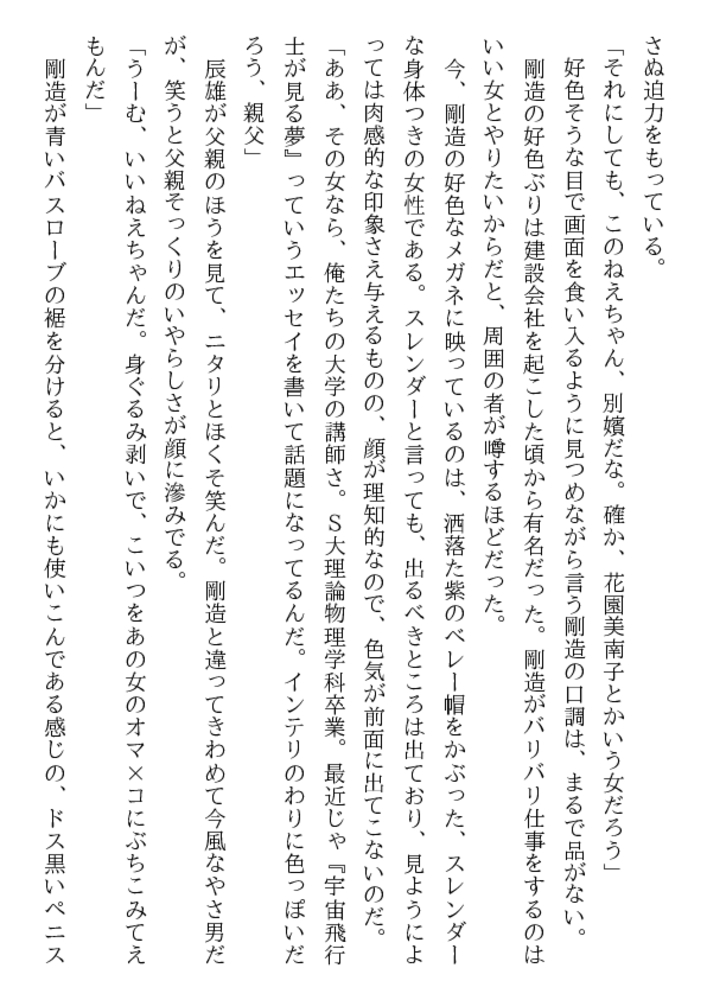 さぬ迫力をもっている。
「それにしても、このねえちゃん、別嬪だな。確か、花園美南子とかいう女だろう」
好色そうな目で画面を食い入るように見つめながら言う剛造の口調は、まるで品がない。
剛造の好色ぶりは建設会社を起こした頃から有名だった。剛造がバリバリ仕事をするのは
いい女とやりたいからだと、周囲の者が噂するほどだった。
今、剛造の好色なメガネに映っているのは、洒落た紫のベレー帽をかぶった、スレンダー
な身体つきの女性である。スレンダーと言っても、出るべきところは出ており、見ようによ
っては肉感的な印象さえ与えるものの、顔が理知的なので、色気が前面に出てこないのだ。
「ああ、その女なら、俺たちの大学の講師さ。Ｓ大理論物理学科卒業。最近じゃ『宇宙飛行
士が見る夢』っていうエッセイを書いて話題になってるんだ。インテリのわりに色っぽいだ
ろう、親父」
辰雄が父親のほうを見て、ニタリとほくそ笑んだ。剛造と違ってきわめて今風なやさ男だ
が、笑うと父親そっくりのいやらしさが顔に滲みでる。
「うーむ、いいねえちゃんだ。身ぐるみ剥いで、こいつをあの女のオマ×コにぶちこみてえ
もんだ」
剛造が青いバスローブの裾を分けると、いかにも使いこんである感じの、ドス黒いペニス